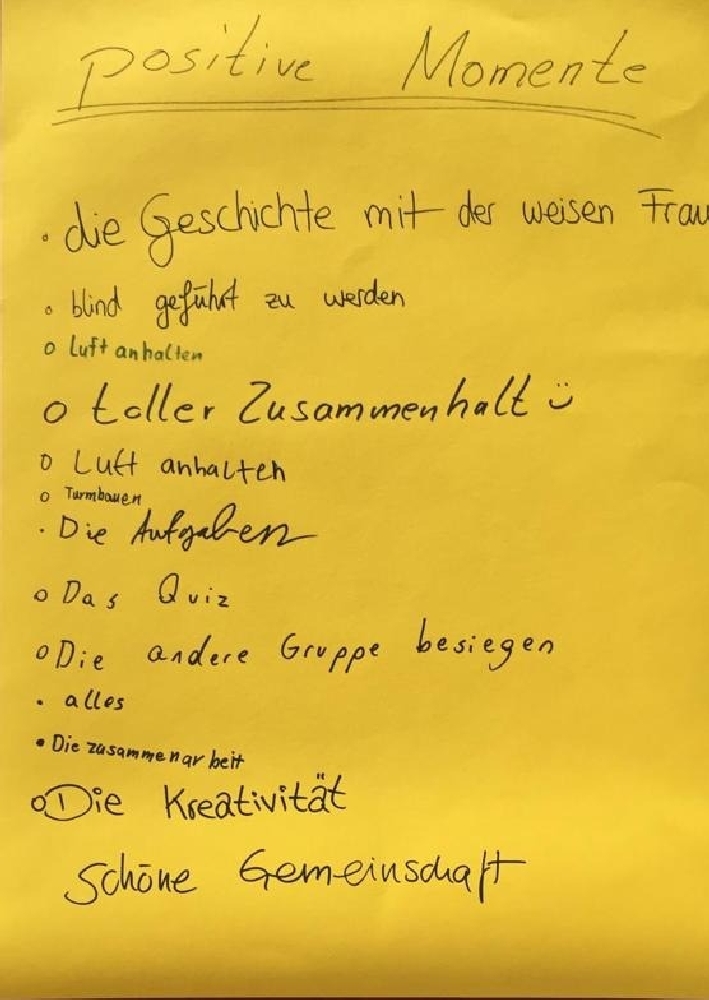 positive Momente
• die Geschichte mit der weisen Frau
o blind geführt zu werden
o Luft anhalten
o toller Zusammenhalt ü
o Luft anhalten
o Turmbauen
• Die Aufgaben
o Das Quiz
o Die andere Gruppe besiegen
• alles
• Die zusammenarbeit
o Die Kreativität
Schöne Gemeinschaft